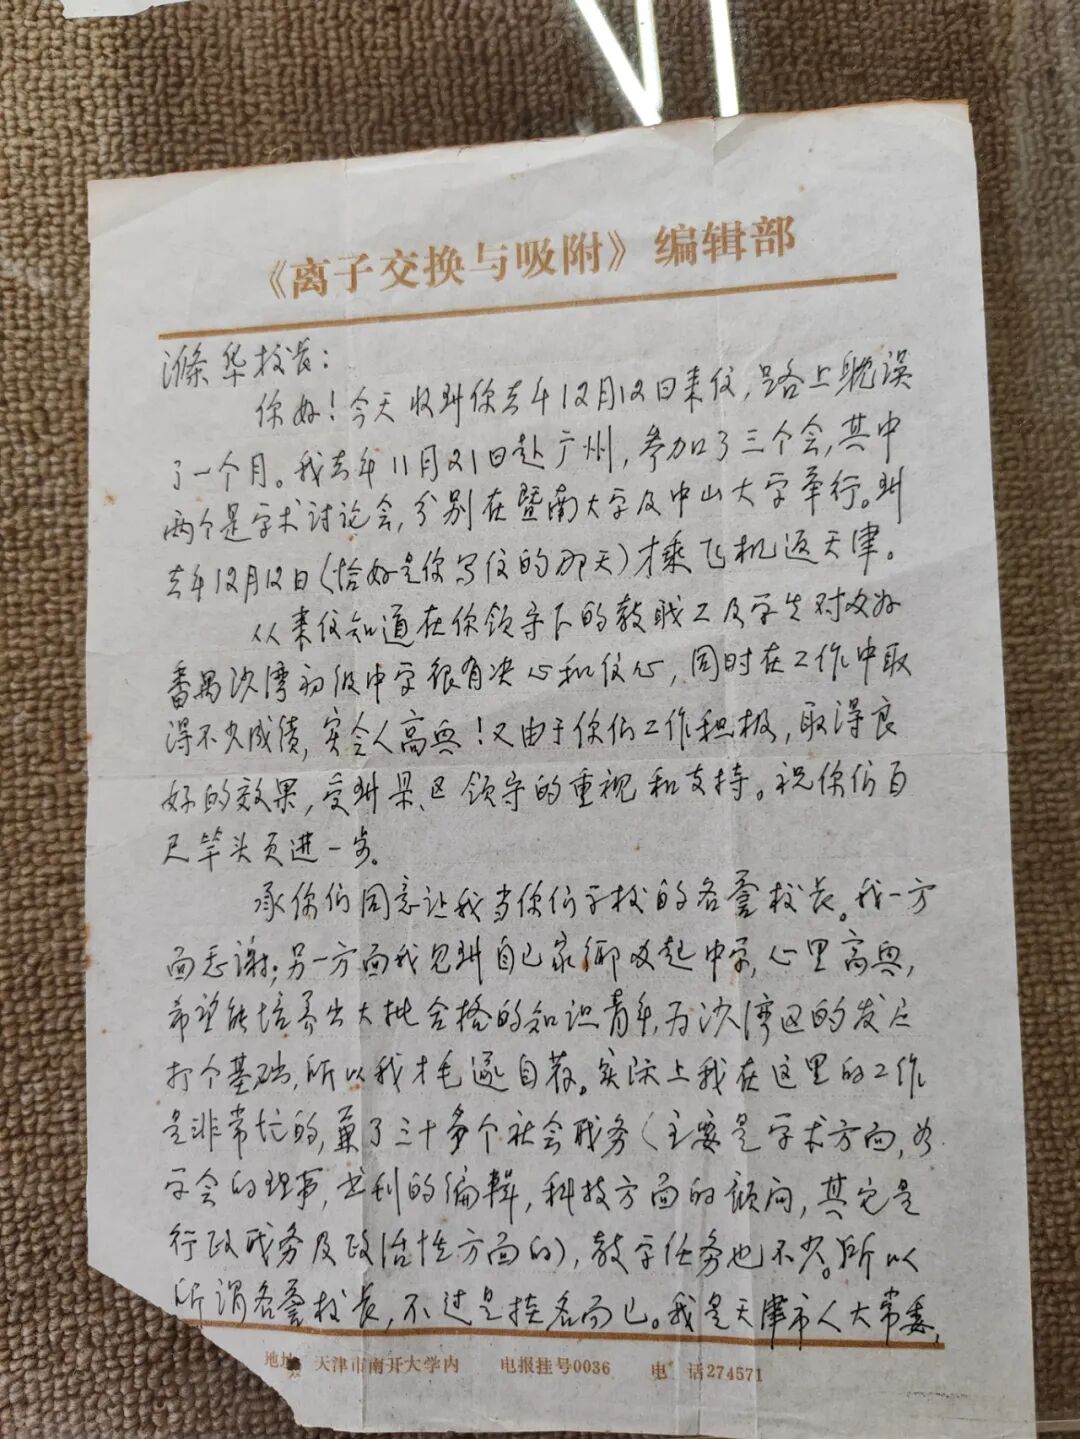 《离子交换与吸附》编辑部
滌华校长：
你好！今天收到你去年12月12日来信，路上耽误
了一个月。我去年11月21日赴广州，参加了三个会，其中
两个是学术讨论会，分别在暨南大学及中山大学举行。到
去年12月12日（恰好是你写信的那天）才乘飞机返天津。
从来信知道在你领导下的教职工及学生对办好
番禺沙湾初级中学很有决心和信心，同时在工作中取
得不少成绩，实令人高兴！又由于你们工作积极，取得良
好的效果，受到县、区领导的重视和支持。祝你们百
尺竿头更进一步。
承你们同意让我当你们学校的名誉校长。我一方
面志谢；另一方面我见到自己家乡办起中学，心里高兴，
希望能培养出大批合格的知识青年，为沙湾区的发展
打个基础，所以我才毛遂自荐。实际上我在这里的工作
是非常忙的，兼了三十多个社会职务（主要是学术方面，如
学会的理事，书刊的编辑，科技方面的顾问，其它是
行政职务及政治性方面的），教学任务也不少。所以
所谓名誉校长，不过是挂名而已。我是天津市人大常委，
地址 天津市南开大学内 电报挂号0036 电 话274571